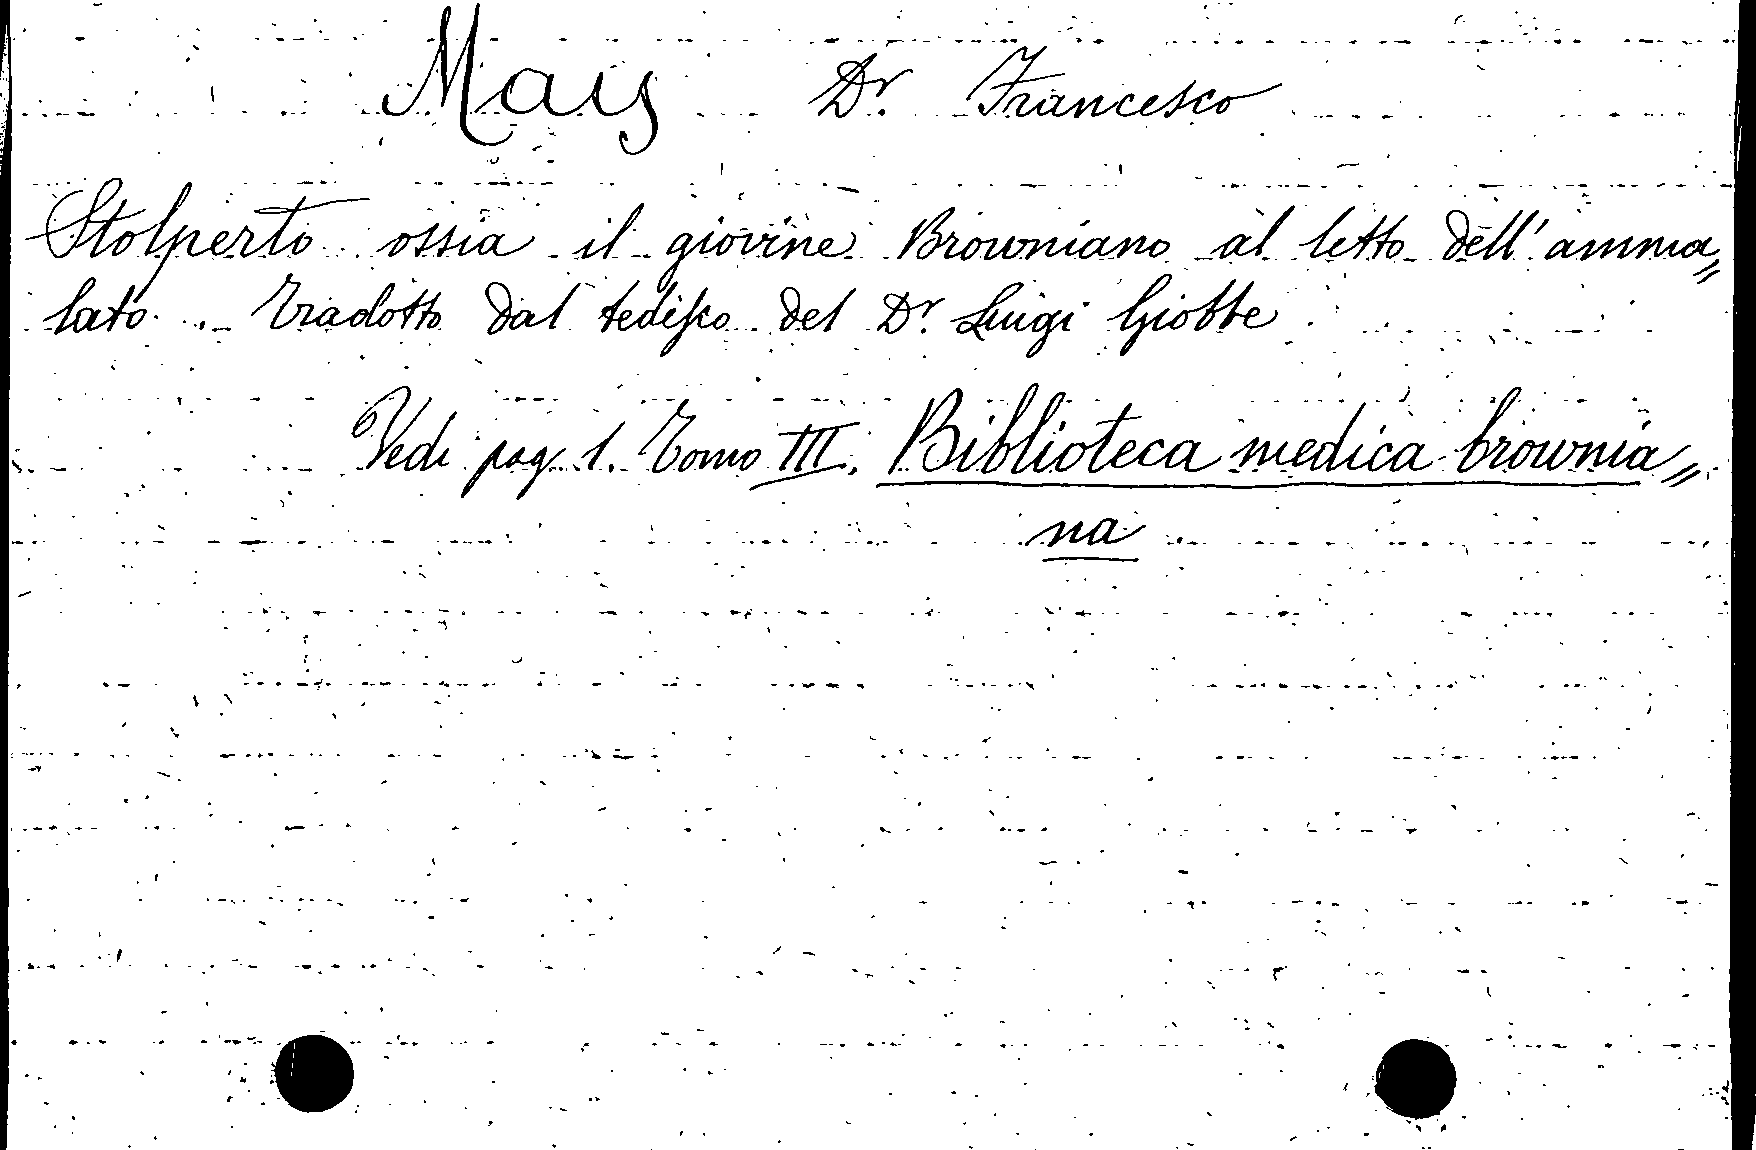 May Dr. Francesco
Stolperto ossia il giovine Browniano al letto dell'amma„
lato. Tradotto dal tedesco del Dr. Luigi Giobbe
Vedi pag. 1. Tomo III. Biblioteca medica brownia„
na